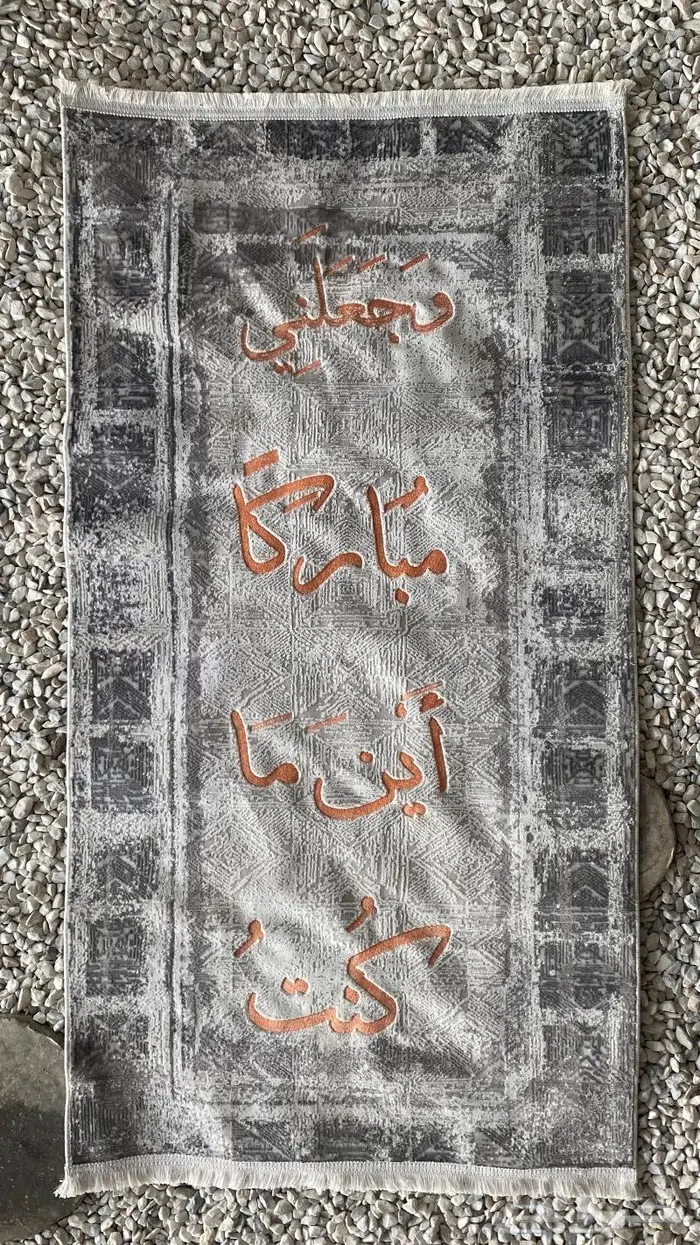 وَجَعَلَنِي
مُبَارَكًا
أَيْنَ مَا
كُنْتُ